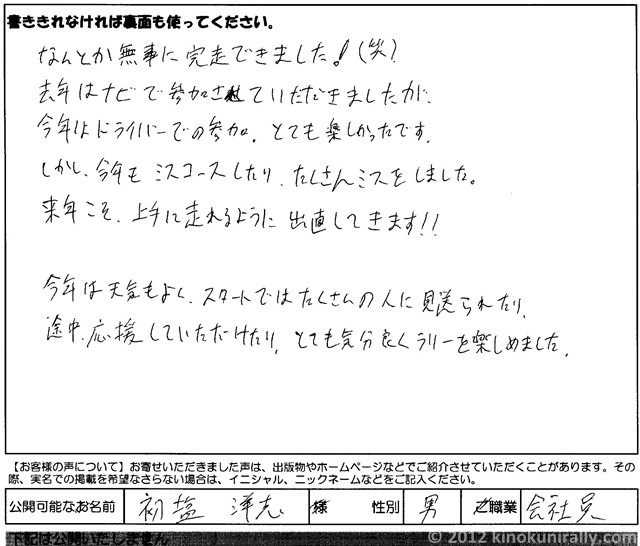 書ききれなければ裏面も使ってください。
なんとか無事に完走できました!(笑)
去年はナビで参加させていただきましたが、
今年はドライバーでの参加、とても楽しかったです。
しかし、今年もミスコースしたり、たくさんミスをしました。
来年こそ、上手に走れるように出直してきます!!
今年は天気もよく、スタートではたくさんの人に見送られたり、
途中、応援していただけたり、とても気分良くラリーを楽しめました。
【お客様の声について】お寄せいただきました声は、出版物やホームページなどでご紹介させていただくことがあります。その
際、実名での掲載を希望なさらない場合は、イニシャル、ニックネームなどをご記入ください。
公開可能なお名前 初塩 洋志 様 性別 男 ご職業 会社員
下記は公開いたしません
© 2012 kinokunirally.com